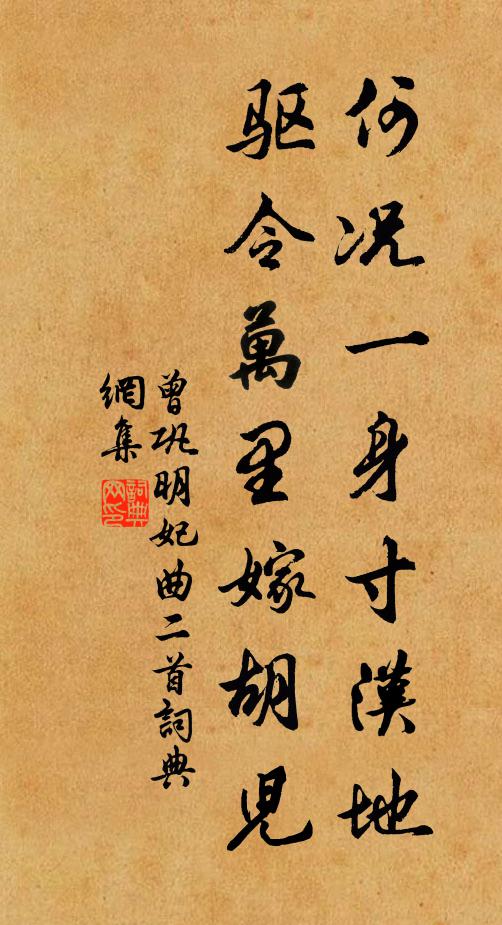 何况一身寸漢地
驱令萬里嫁胡児
曾巩明妃曲二首詞典
網集
詞典
网印